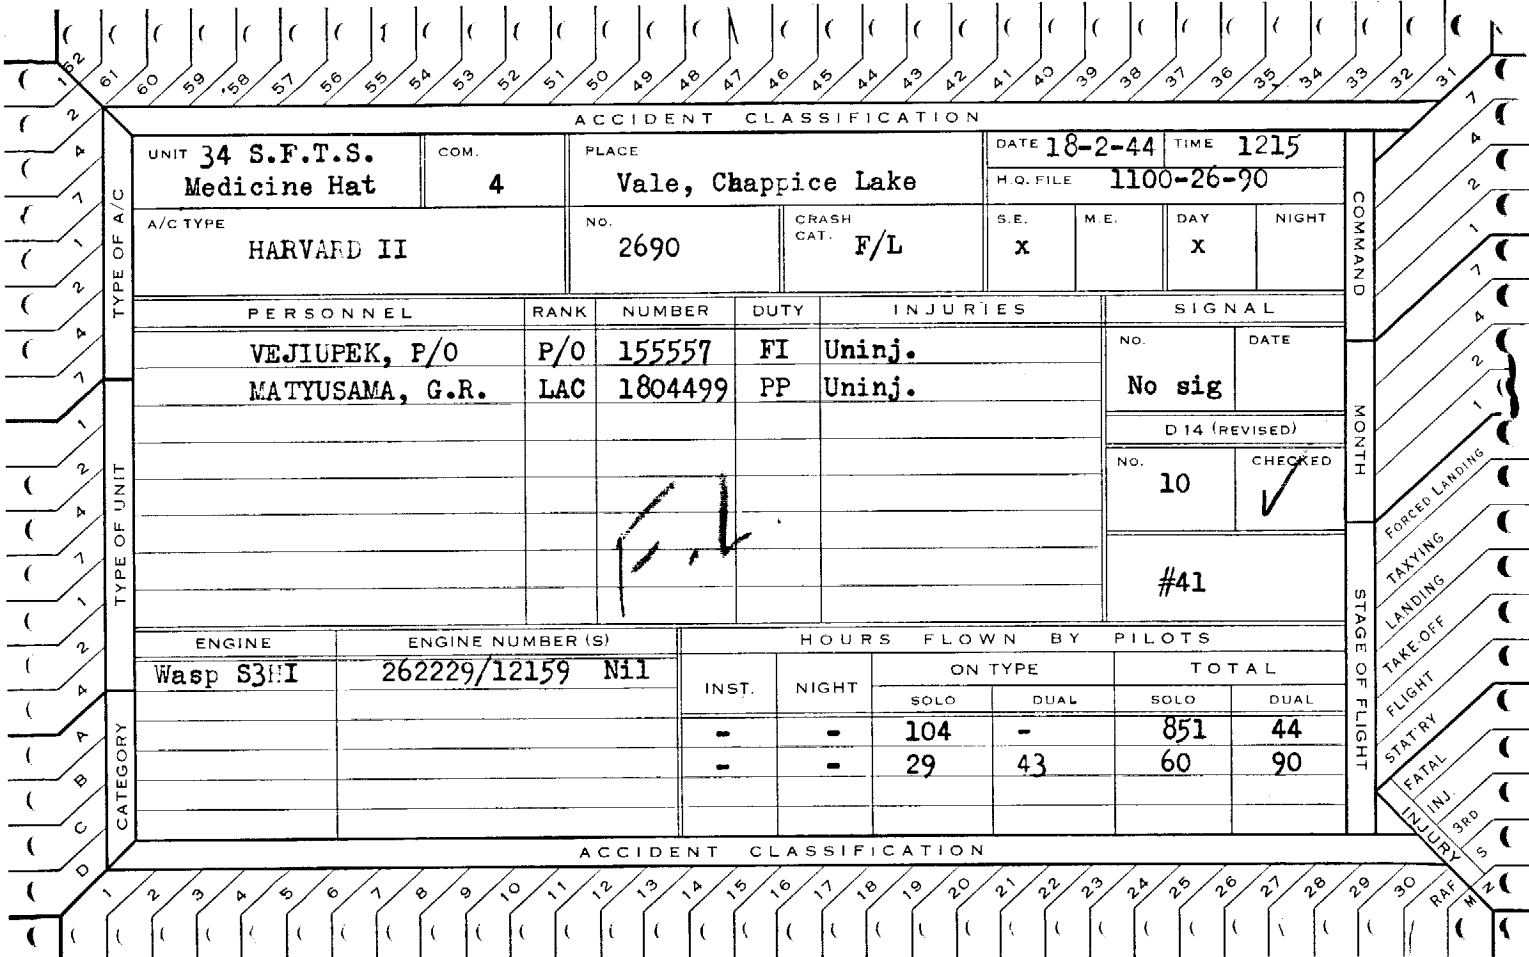 62 61 60 59 58 57 56 55 54 53 52 51 50 49 48 47 46 45 44 43 42 41 40 39 38 37 36 35 34 33 32 31
1 2 4 7 1 2 4 7 1 2 4 7 1 2 4 A B C D
ACCIDENT CLASSIFICATION
TYPE OF A/C
TYPE OF UNIT
CATEGORY
UNIT 34 S.F.T.S.
Medicine Hat
COM.
4
PLACE
Vale, Chappice Lake
DATE 18-2-44 TIME 1215
H.Q. FILE 1100-26-90
A/C TYPE
HARVARD II
NO.
2690
CRASH
CAT. F/L
S.E. M.E. DAY NIGHT
x x
PERSONNEL RANK NUMBER DUTY INJURIES
VEJIUPEK, P/O P/O 155557 FI Uninj.
MATYUSAMA, G.R. LAC 1804499 PP Uninj.
F.L
SIGNAL
NO. DATE
No sig
D 14 (REVISED)
NO. CHECKED
10 ✓
#41
ENGINE ENGINE NUMBER (S)
Wasp S3HI 262229/12159 Nil
HOURS FLOWN BY PILOTS
INST. NIGHT ON TYPE TOTAL
SOLO DUAL SOLO DUAL
- - 104 - 851 44
- - 29 43 60 90
COMMAND
MONTH
STAGE OF FLIGHT
7 4 2 1 7 4 2 1
FORCED LANDING
TAXYING
LANDING
TAKE-OFF
FLIGHT
STAT'RY
FATAL
INJ.
3RD
S
N
INJURY
ACCIDENT CLASSIFICATION
1 2 3 4 5 6 7 8 9 10 11 12 13 14 15 16 17 18 19 20 21 22 23 24 25 26 27 28 29 30 RAF M